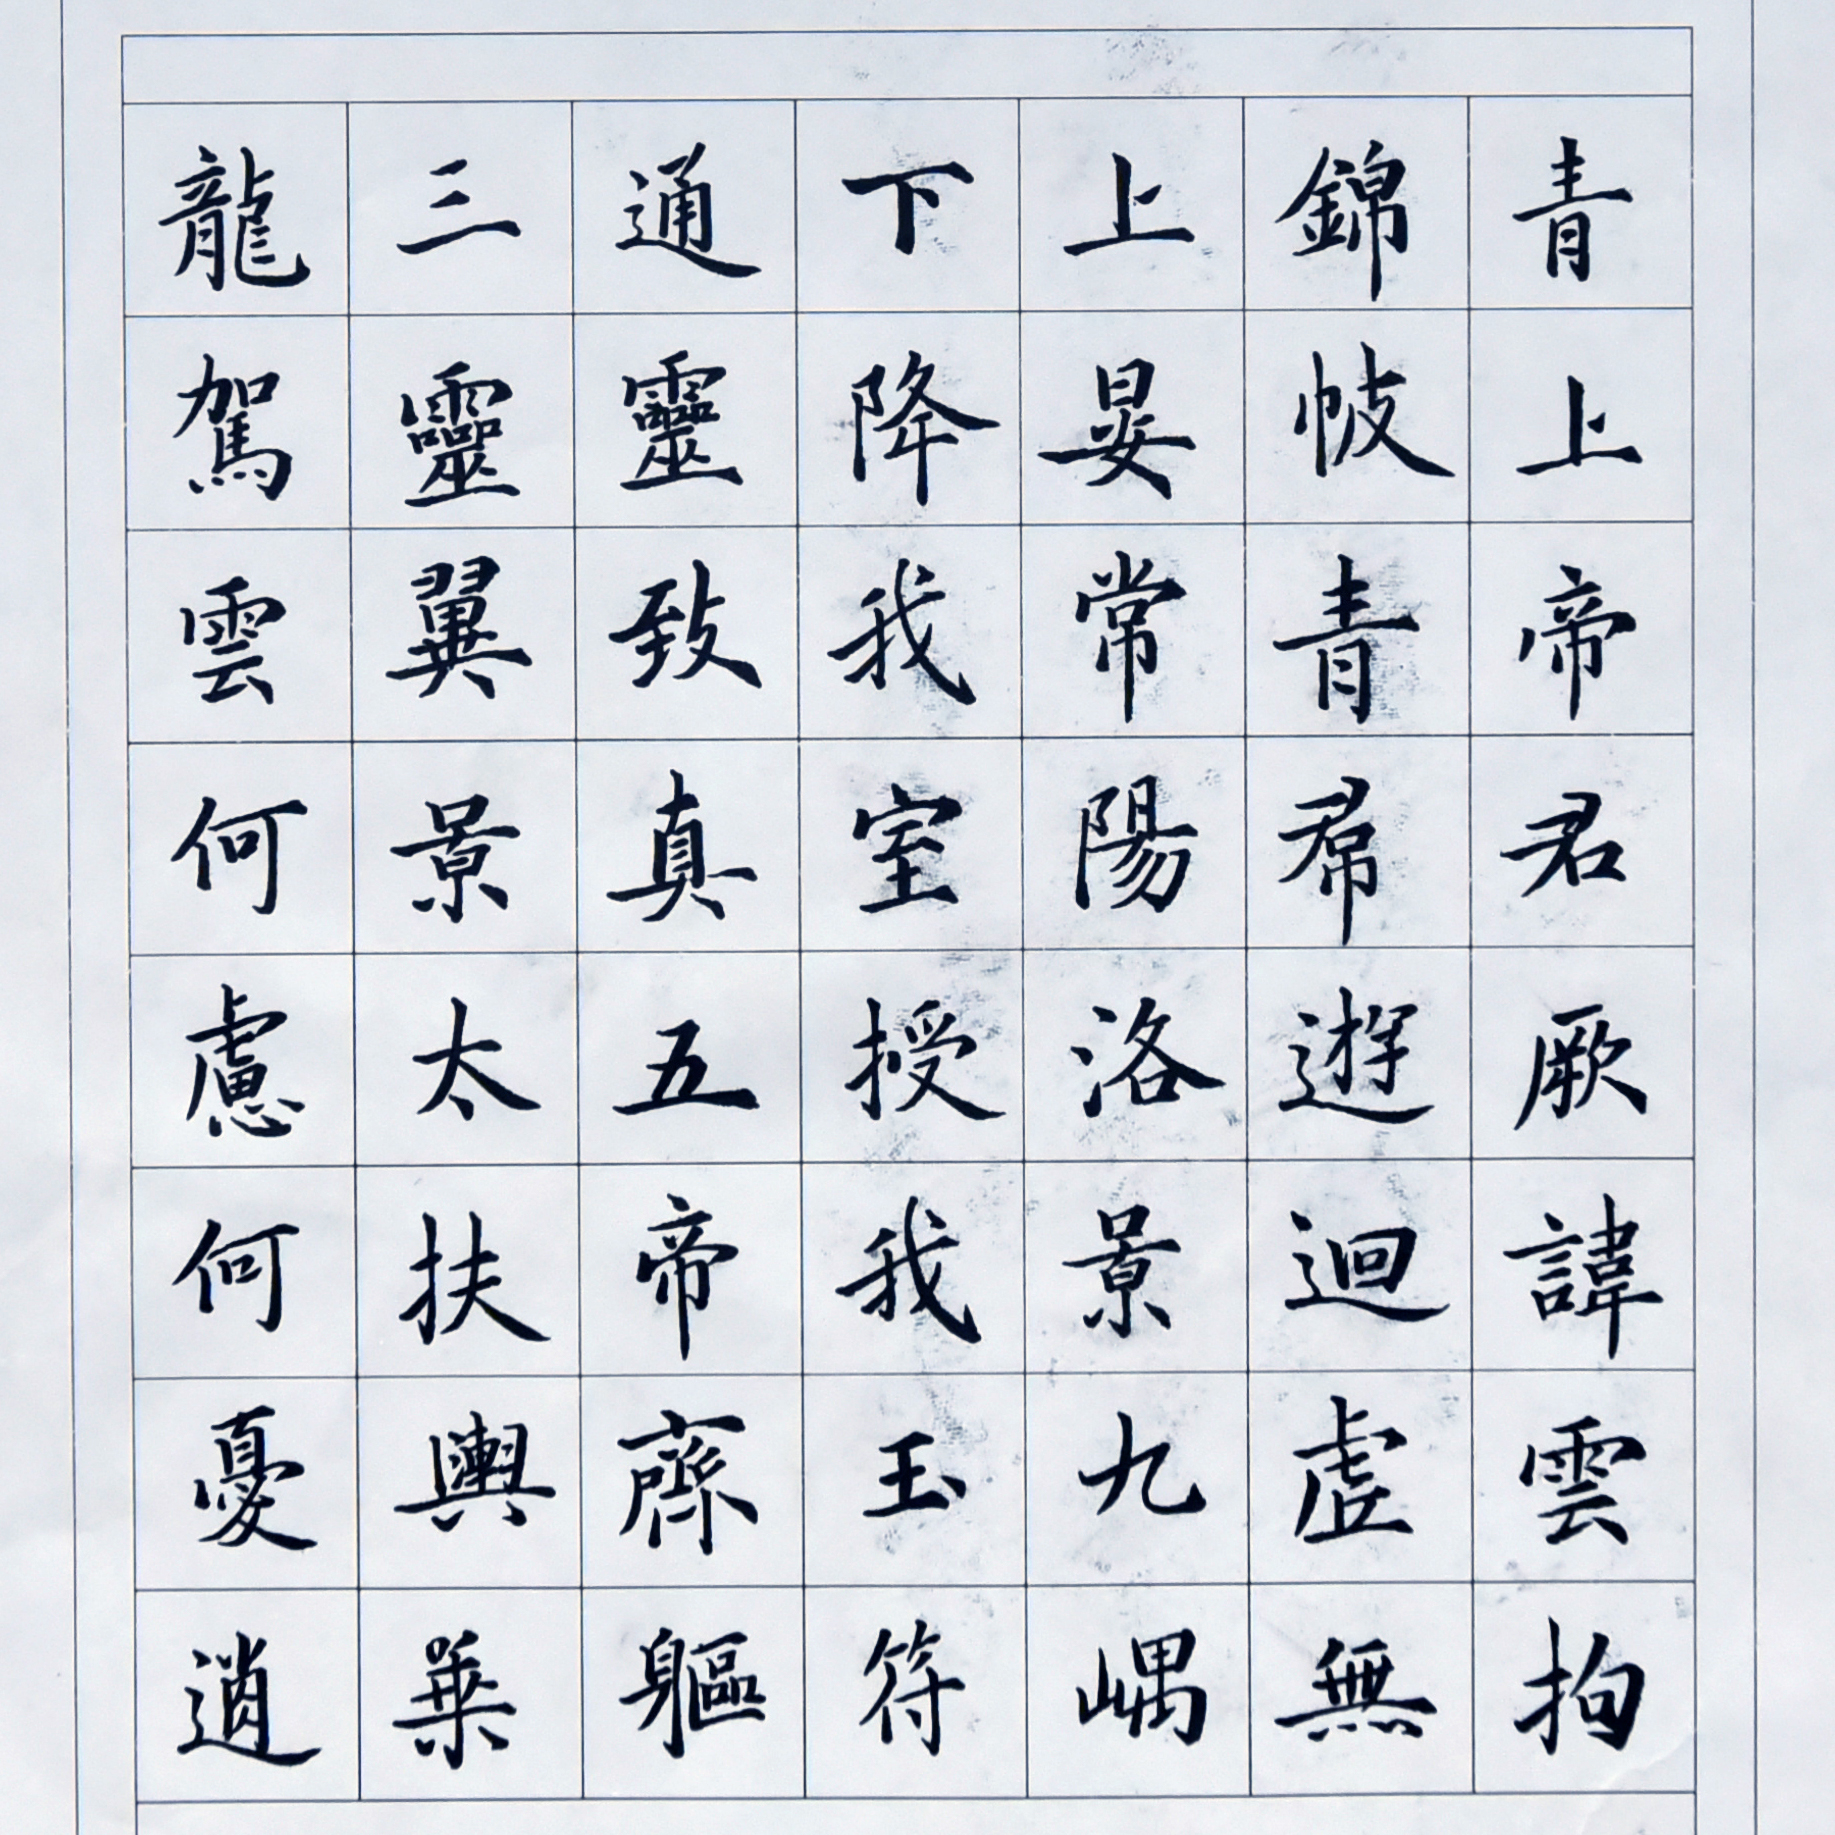 青上帝君厥諱雲拘
錦帔青帬遊迴虛無
上晏常陽洛景九嵎
下降我室授我玉符
通靈致真五帝齊軀
三靈翼景太扶輿乘
龍駕雲何慮何憂逍